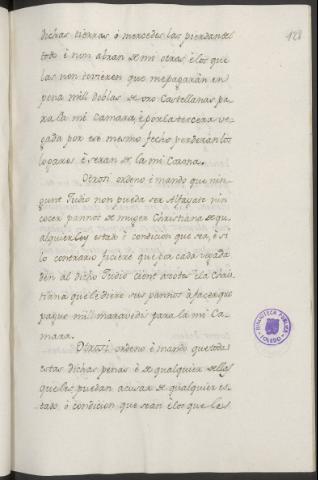 128
dichas tierras, ó mercedes las pierdan del
todo é non abran de mi otras, é los que
las non tovieren que me pagarán en
pena mill doblas de oro Castellanas pa-
ra la mi Camara, é por la tercera ve-
gada por ese mesmo fecho perderan los
logares, é seran de la mi Corona.
Otrosi ordeno é mando que nin-
gunt Judio non pueda ser Alfayate nin
cocer pannos de muger Christiana de qu-
alquier ley estado é condicion que sea, é si
lo contrario ficiere que por cada vegada
den al dicho Judio cient azotes é la Chris-
tiana que le diere sus pannos á facer que
pague mill maravedis para la mi Ca-
mara.
Otrosi ordeno é mando que todas
estas dichas penas é de qualquier dellas
que les puedan acusar de qualquier es-
tado, ó condicion que sean é los que les
BIBLIOTECA PUBLICA
TOLEDO